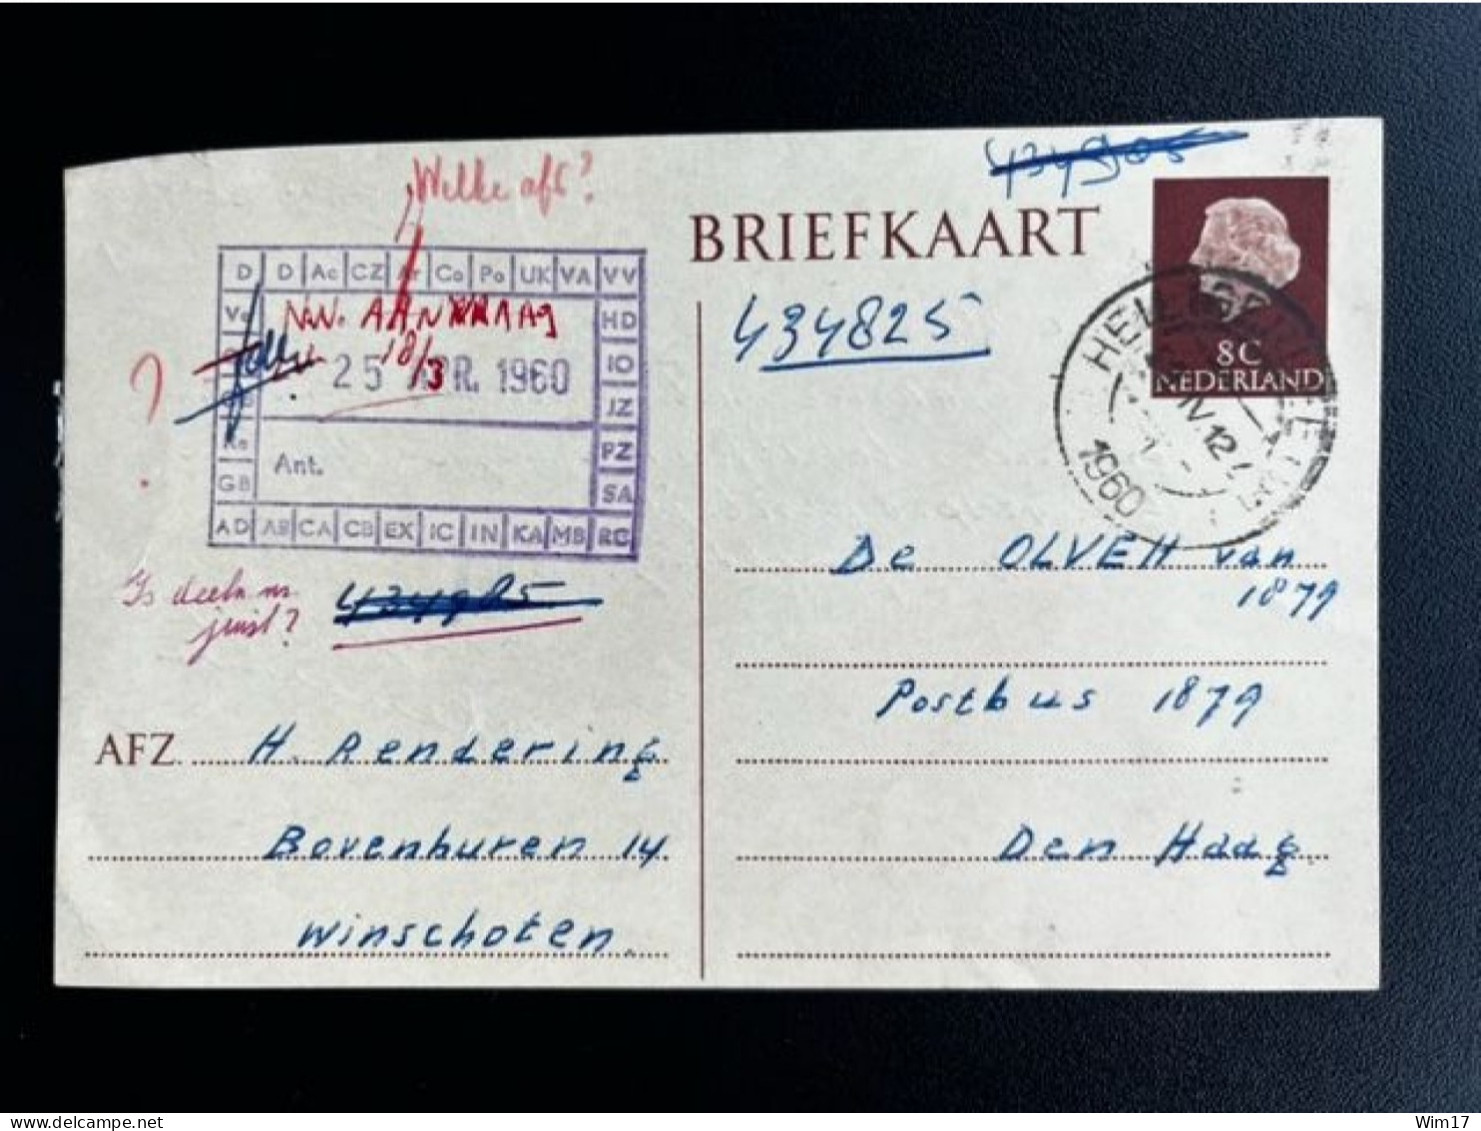 434905
„Welke afd?
BRIEFKAART
8 C
NEDERLAND
D D Ac CZ Ar Co Po UK VA VV
Ve HD
N.N. AANVRAAG
18/3
25 APR. 1960
IO
JZ
Ant.
PZ
GB SA
AD AB CA CB EX IC IN KA MB RC
?
434825
1960
IV 12
De OLVEH van
1879
Is deeln nr.
juist?
434905
Postbus 1879
AFZ. H. Rendering
Bovenburen 14
Den Haag.
Winschoten.
Wim17